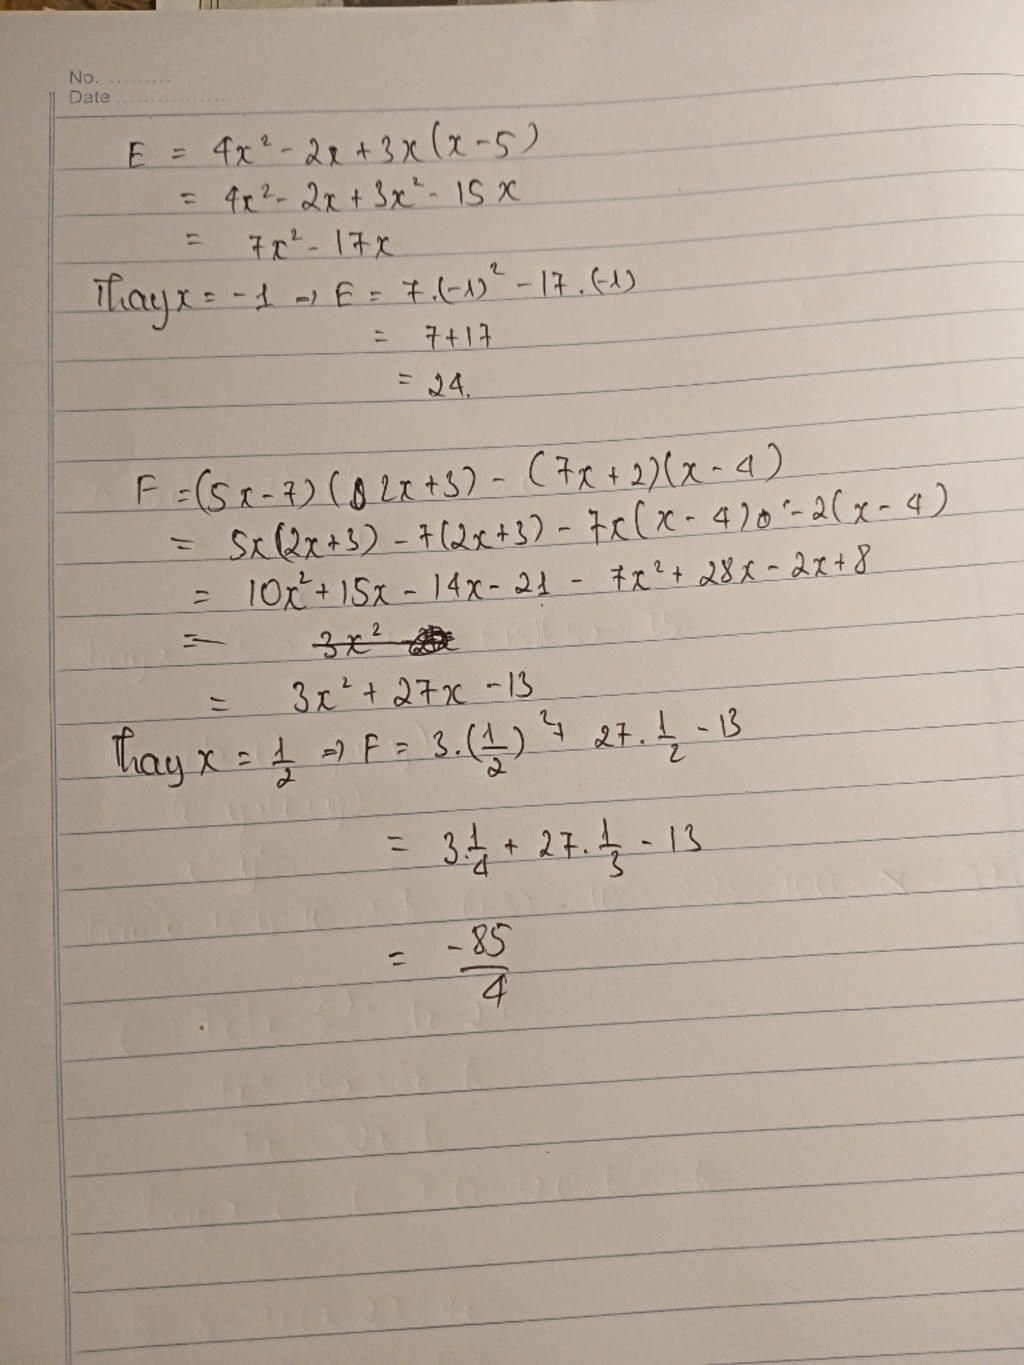 No. .........
Date ...................
E = 4x² - 2x + 3x(x-5)
= 4x² - 2x + 3x² - 15x
= 7x² - 17x
Thay x = -1 => E = 7.(-1)² - 17.(-1)
= 7+17
= 24.
F = (5x-7)(2x+3) - (7x+2)(x-4)
= 5x(2x+3) - 7(2x+3) - 7x(x-4) - 2(x-4)
= 10x² + 15x - 14x - 21 - 7x² + 28x - 2x + 8
= 3x²
= 3x² + 27x - 13
Thay x = 1/2 => F = 3.(1/2)² + 27.1/2 - 13
= 3.1/4 + 27.1/3 - 13
= -85/4